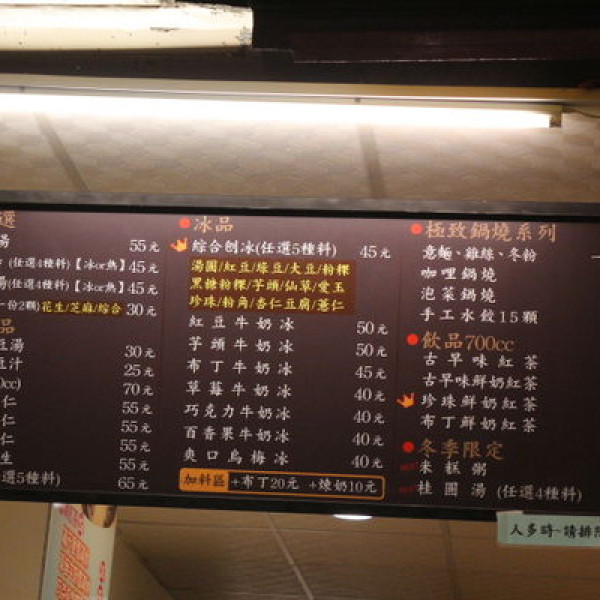 選
湯 55元
(任選4種料)【冰or熱】45元
(任選4種料)【冰or熱】45元
一份2顆)花生/芝麻/綜合 30元
品
豆湯 30元
豆汁 25元
0cc) 70元
仁 55元
仁 55元
仁 55元
生 55元
選5種料) 65元
冰品
綜合刨冰(任選5種料) 45元
湯圓/紅豆/綠豆/大豆/粉粿
黑糖粉粿/芋頭/仙草/愛玉
珍珠/粉角/杏仁豆腐/薏仁
紅豆牛奶冰 50元
芋頭牛奶冰 50元
布丁牛奶冰 45元
草莓牛奶冰 40元
巧克力牛奶冰 40元
百香果牛奶冰 40元
爽口烏梅冰 40元
加料區 +布丁20元 +煉奶10元
極致鍋燒系列
意麵、雞絲、冬粉
咖哩鍋燒
泡菜鍋燒
手工水餃15顆
飲品700cc
古早味紅茶
古早味鮮奶紅茶
珍珠鮮奶紅茶
布丁鮮奶紅茶
冬季限定
米糕粥
桂圓湯 (任選4種料)
人多時~請排